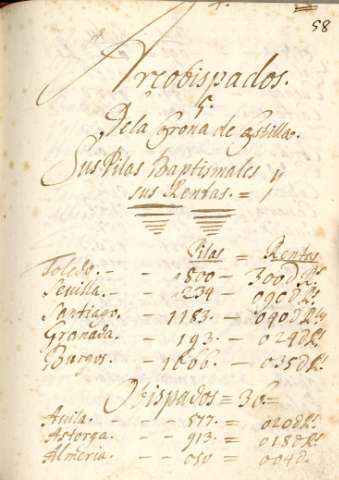 58
Arcobispados.
5.
De la Corona de Castilla.
Sus Pilas Baptismales y
sus Rentas. =
Pilas = Rentas
Toledo. - - 800 - 300d Rs.
Sevilla. - - 234 - 090d Rs.
Santiago. - 1183. - 040d Rs.
Granada. - 193. - 024d Rs.
Burgos. - 1666. - 035d Rs.
Obispados = 36 =
Auila. - - 577. = 020d Rs.
Astorga. - - 913. = 018d Rs.
Almeria. - - 050 = 004d.